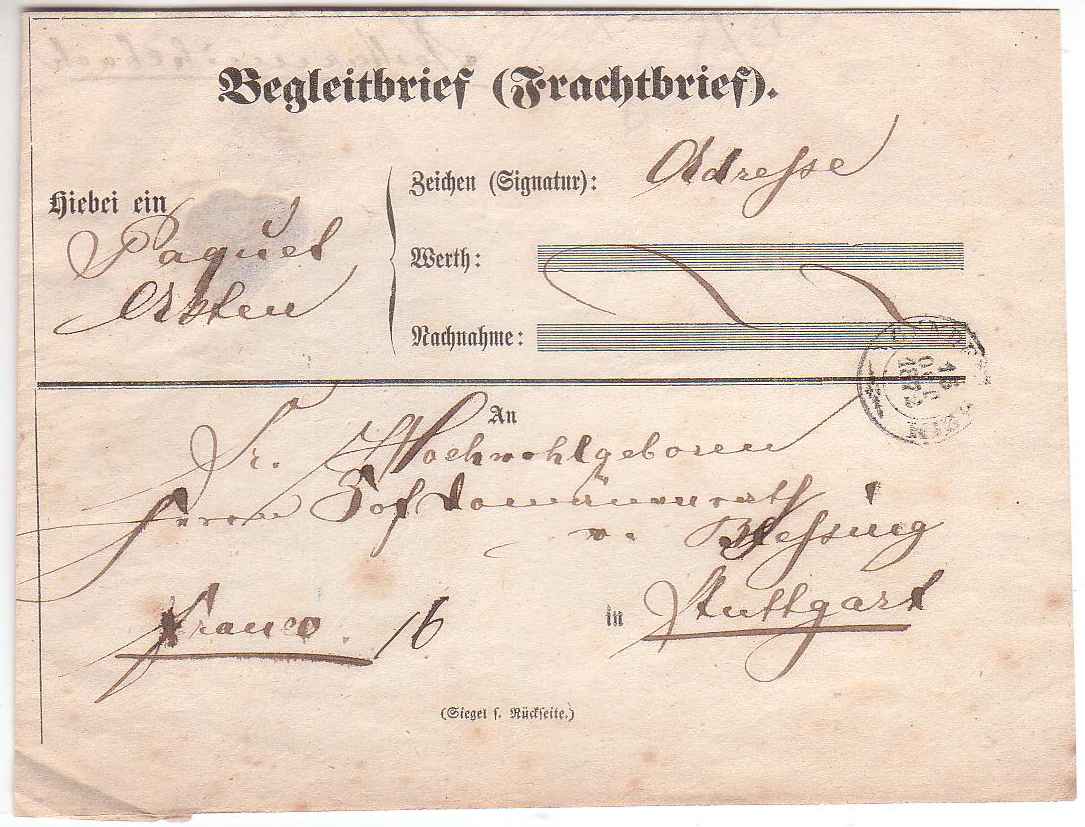 Begleitbrief (Frachtbrief).
Hiebei ein
Paquet
Akten
Zeichen (Signatur): Adresse
Werth:
Nachnahme:
15
1872
An
Sr. Hochwohlgeboren
Herrn Hofdomänenrath
v.
in Stuttgart
franco. 16
(Siegel s. Rückseite.)